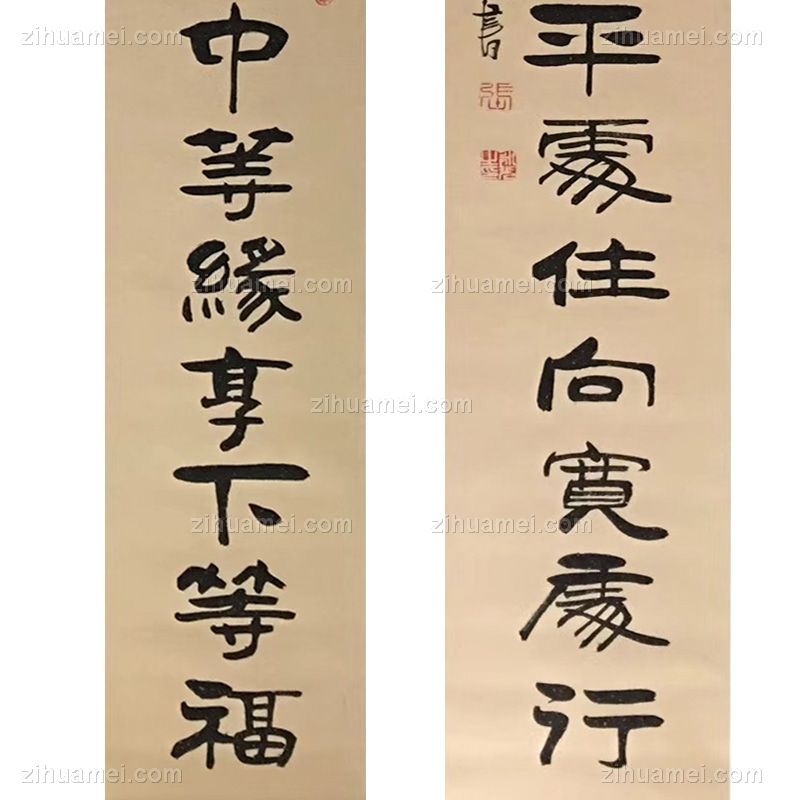 中等緣享下等福
平處住向寬處行
書
張
zihuamei.com
zihuamei.com
zihuamei.com
zihuamei.com
zihuamei.com
zihuamei.com
zihuamei.com
zihuamei.com
zihuamei.com
zihuamei.com
zihuamei.com